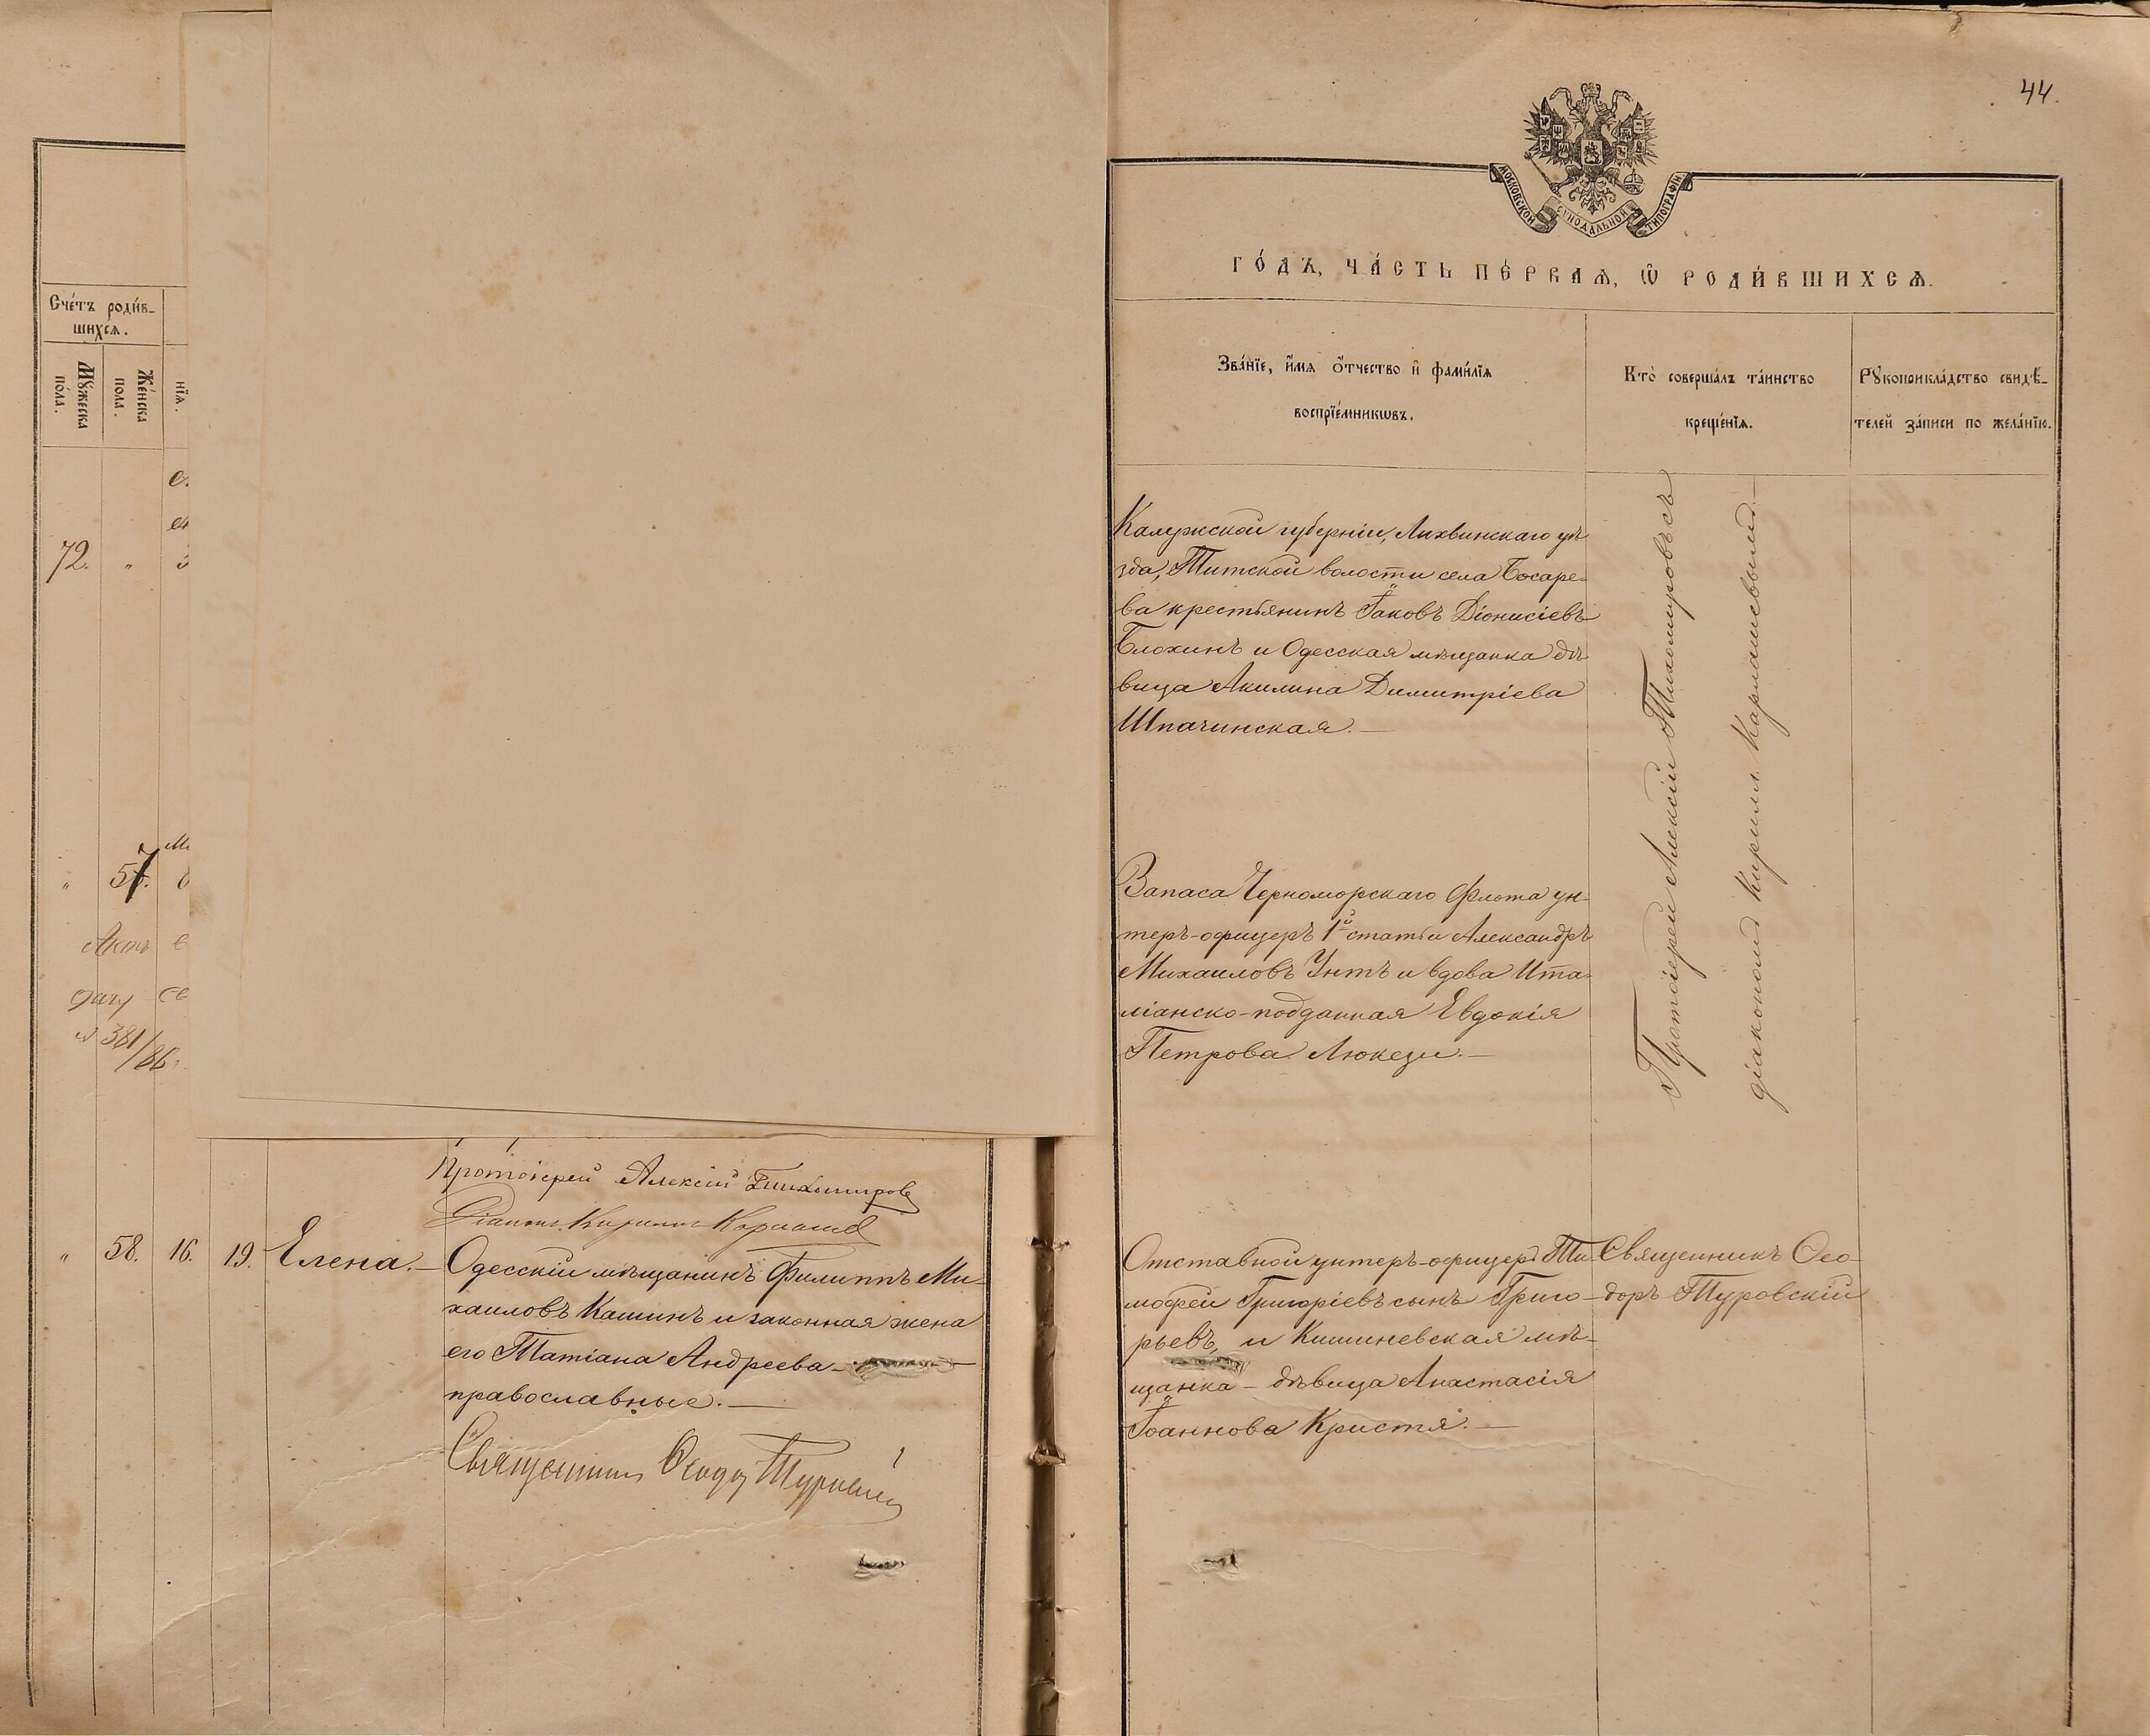 44.
МОСКОВСКОЙ СѴНОДАЛЬНОЙ ТИПОГРАФІИ
ГО́ДЪ, ЧА́СТЬ ПЕ́РВАѦ, Ѽ РОДИ́ВШИХСѦ.
Сче́тъ роди́в-
шихсѧ.
Мꙋ́жеска
по́ла.
Же́нска
пола.
нїѧ.
Зва́нїе, и҆́мѧ ѻ҆́тчество и҆ фами́лїѧ
воспрїе́мникѡвъ.
Кто̀ соверша́лъ та́инство
креще́нїѧ.
Рꙋкоприкла́дство свидѣ́-
телей за́писи по жела́нїю.
72. „
Калужской губерніи, Лихвинскаго уѣ-
зда, Титской волости села Босаре-
ва крестьянинъ Іаковъ Діонисіевъ
Блохинъ и Одесская мѣщанка дѣ-
вица Акилина Димитріева
Шпачинская.—
Протоіерей Алексій Тихомировъ съ
діакономъ Кирилл. Кармашевымъ.—
„ 57.
Актъ
381/86
Запаса Черноморскаго Флота ун-
теръ-офицеръ 1й статьи Александръ
Михаиловъ Унтъ и вдова Ита-
ліанско-подданная Евдокія
Петрова Люкези.—
Протоіерей Алексій Тихомировъ
Діаконъ Кириллъ
„ 58. 16. 19. Елена.—
Одесскій мѣщанинъ Филиппъ Ми-
хаиловъ Кашинъ и законная жена
его Татіана Андреева-
православные.—
Священникъ Ѳеодоръ
Отставной унтеръ-офицеръ Ти-
моѳей Григоріевъ сынъ Григо-
рьевъ, и Кишиневская мѣ-
щанка - дѣвица Анастасія
Іоаннова Кристя.—
Священникъ Ѳео-
доръ Туровскій